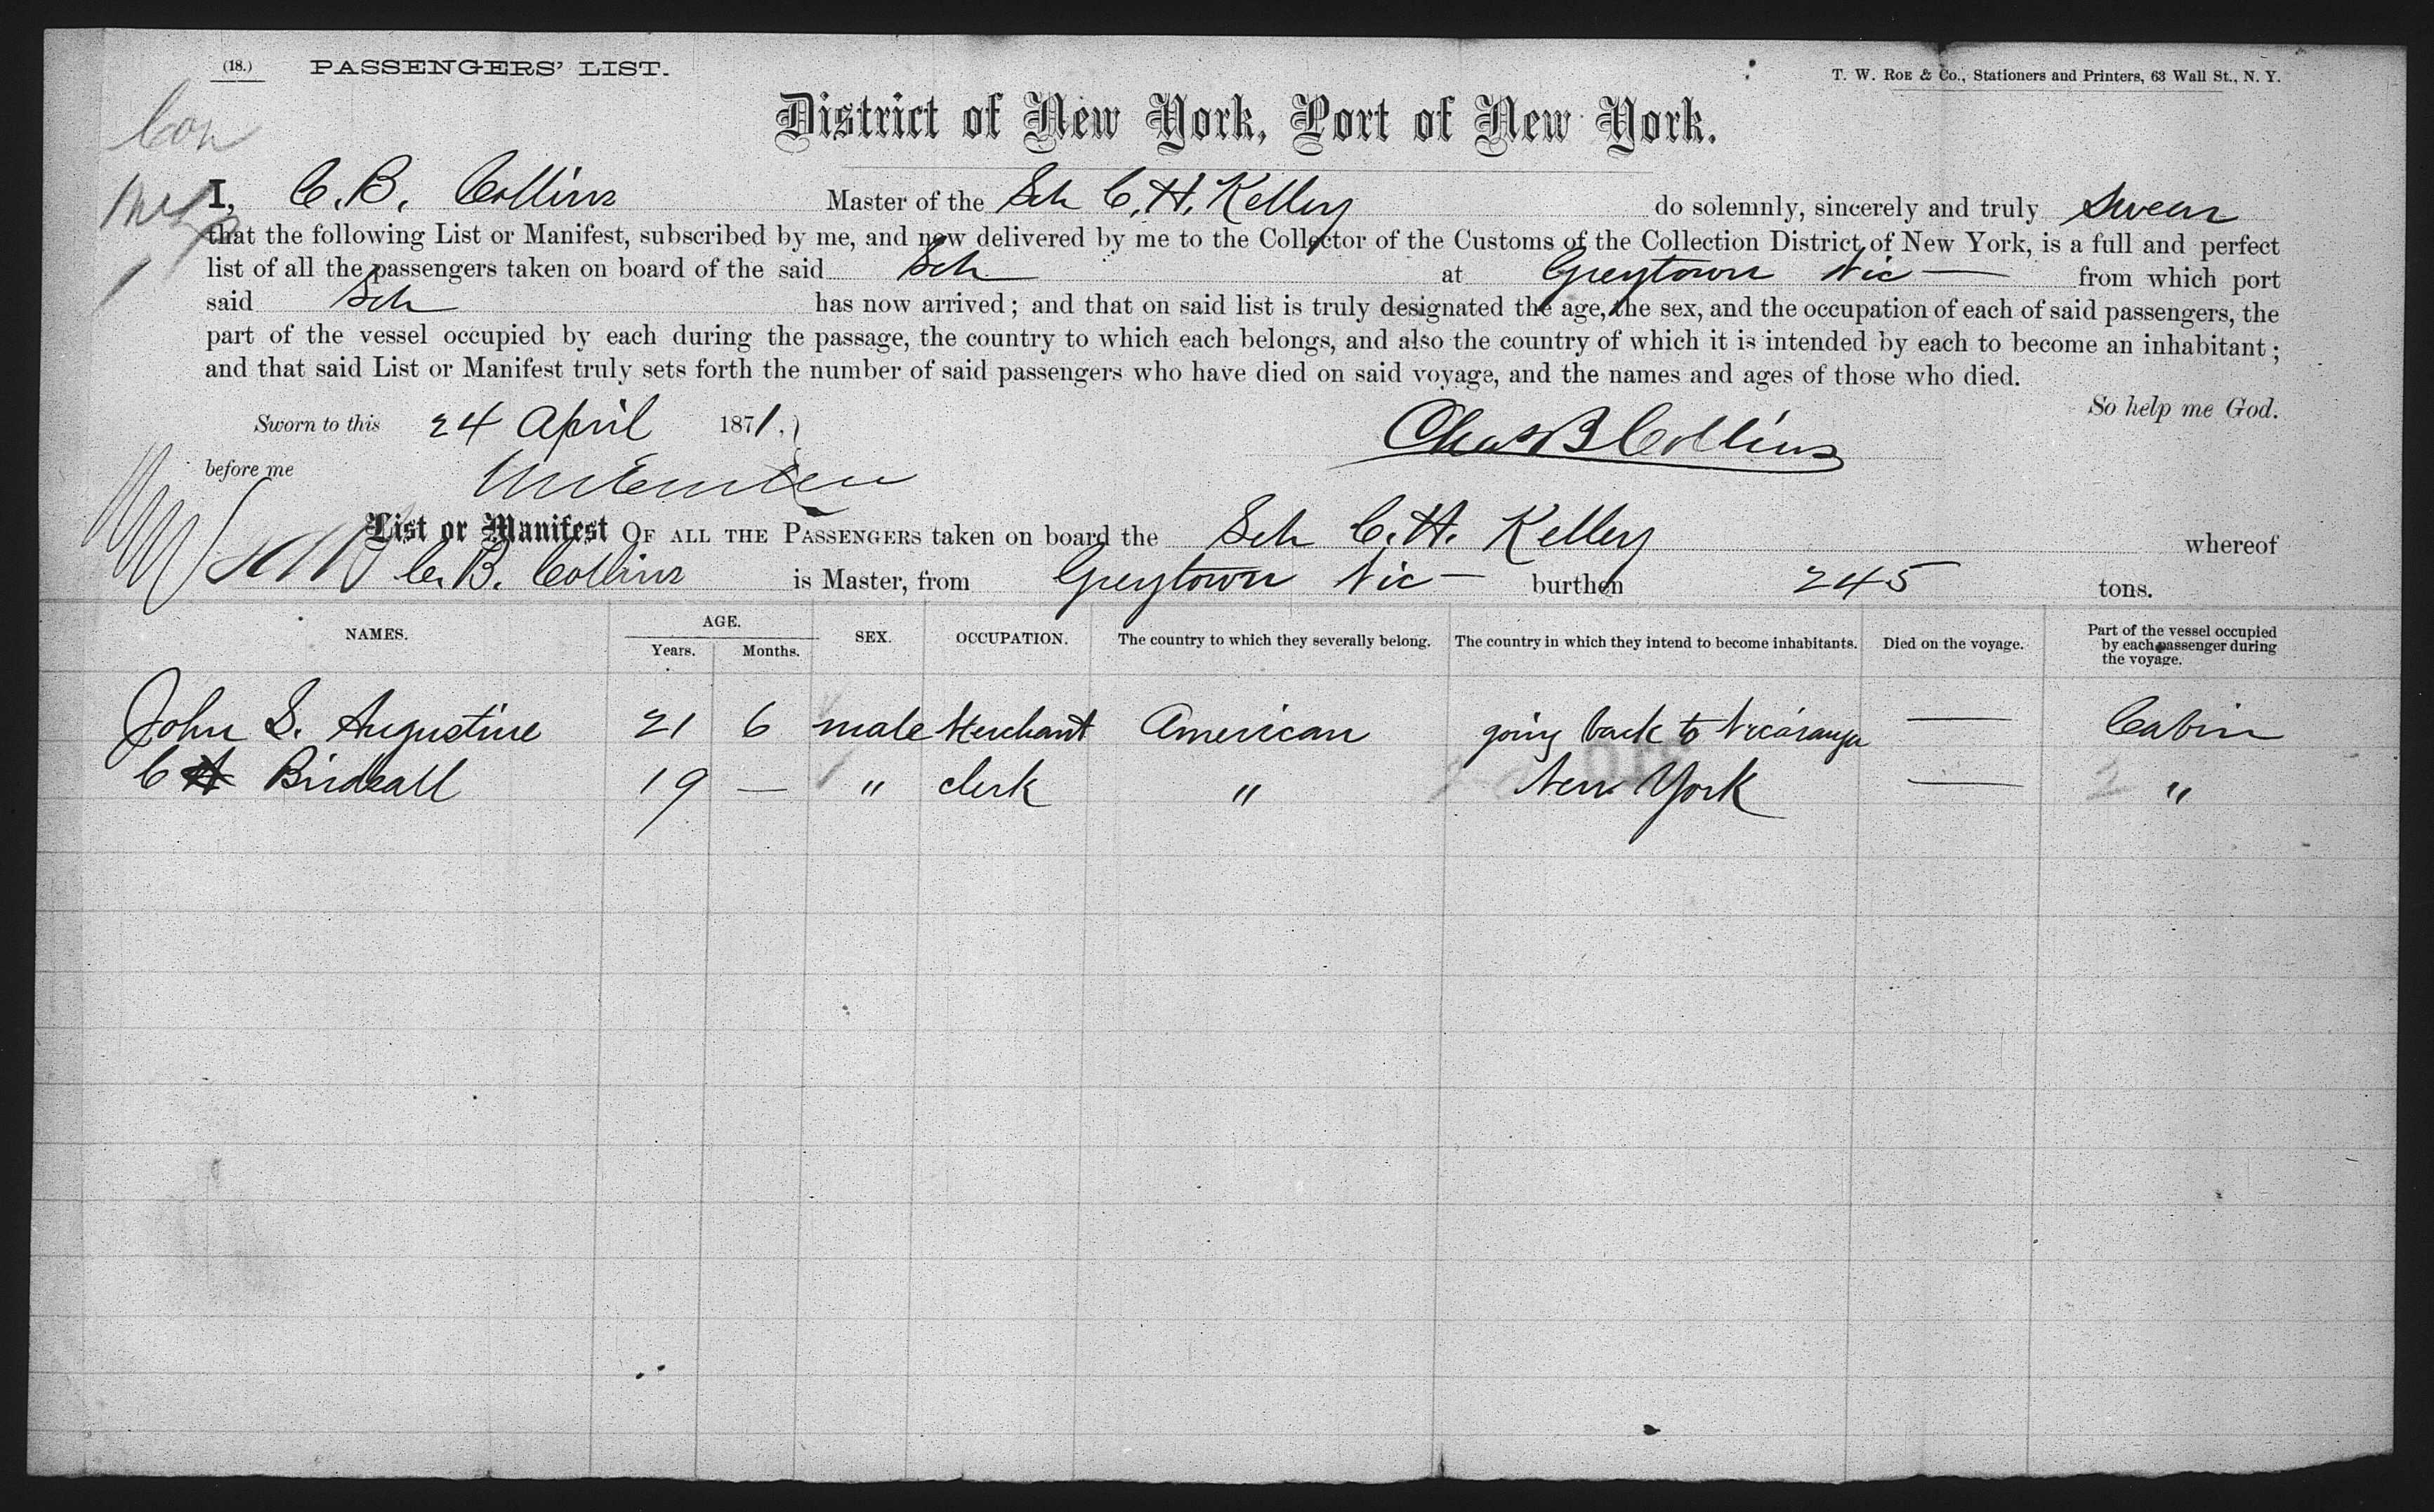 (18.) PASSENGERS' LIST.
T. W. Roe & Co., Stationers and Printers, 63 Wall St., N. Y.
District of New York, Port of New York.
I, C. B. Collins Master of the Sch C. H. Kelley do solemnly, sincerely and truly Swear
that the following List or Manifest, subscribed by me, and now delivered by me to the Collector of the Customs of the Collection District of New York, is a full and perfect
list of all the passengers taken on board of the said Sch at Greytown Nic — from which port
said Sch has now arrived; and that on said list is truly designated the age, the sex, and the occupation of each of said passengers, the
part of the vessel occupied by each during the passage, the country to which each belongs, and also the country of which it is intended by each to become an inhabitant;
and that said List or Manifest truly sets forth the number of said passengers who have died on said voyage, and the names and ages of those who died.
So help me God.
Sworn to this 24 April 1871.
Chas B Collins
before me
List or Manifest OF ALL THE PASSENGERS taken on board the Sch C. H. Kelley whereof
C. B. Collins is Master, from Greytown Nic — burthen 245 tons.
NAMES. AGE. Years. Months. SEX. OCCUPATION. The country to which they severally belong. The country in which they intend to become inhabitants. Died on the voyage. Part of the vessel occupied by each passenger during the voyage.
John S. Augustine 21 6 male Merchant American going back to Nicaragua — Cabin
C H Birdsall 19 — " clerk " New York — "